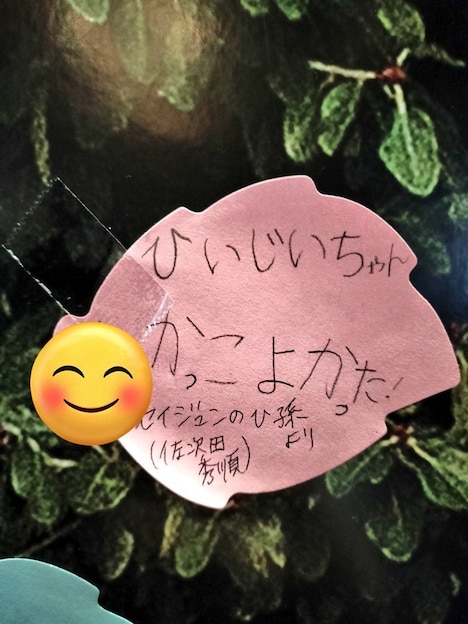 ひいじいちゃん
かっこよかった!
セイジュンのひ孫
より
(佐次田
秀順)